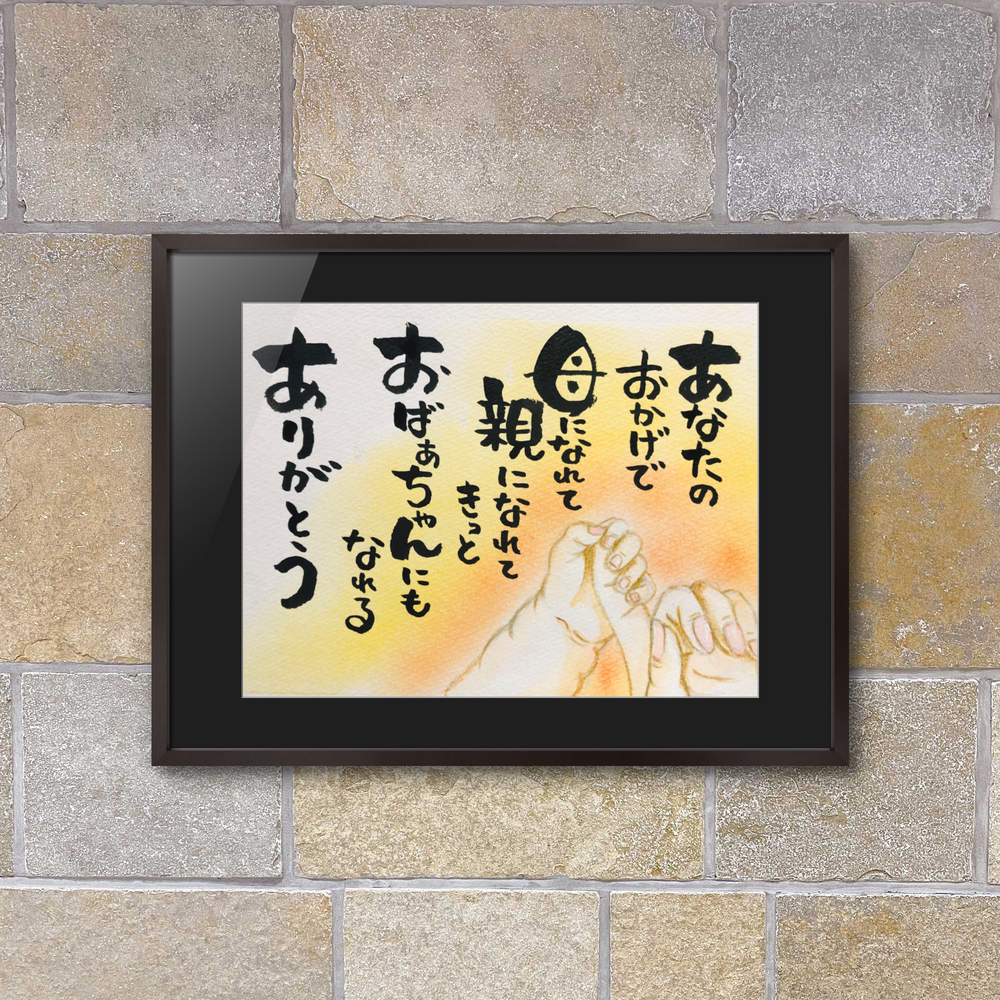 あなたの
おかげで
母になれて
親になれて
きっと
おばぁちゃんにも
なれる
ありがとう